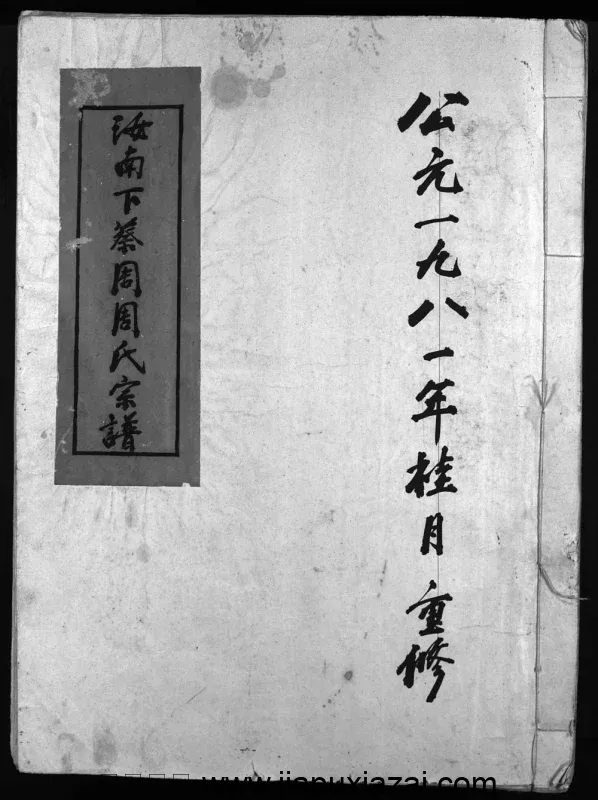 公元一九八一年桂月重修
汝南下蔡周周氏宗譜
www.jiapuxiazai.com